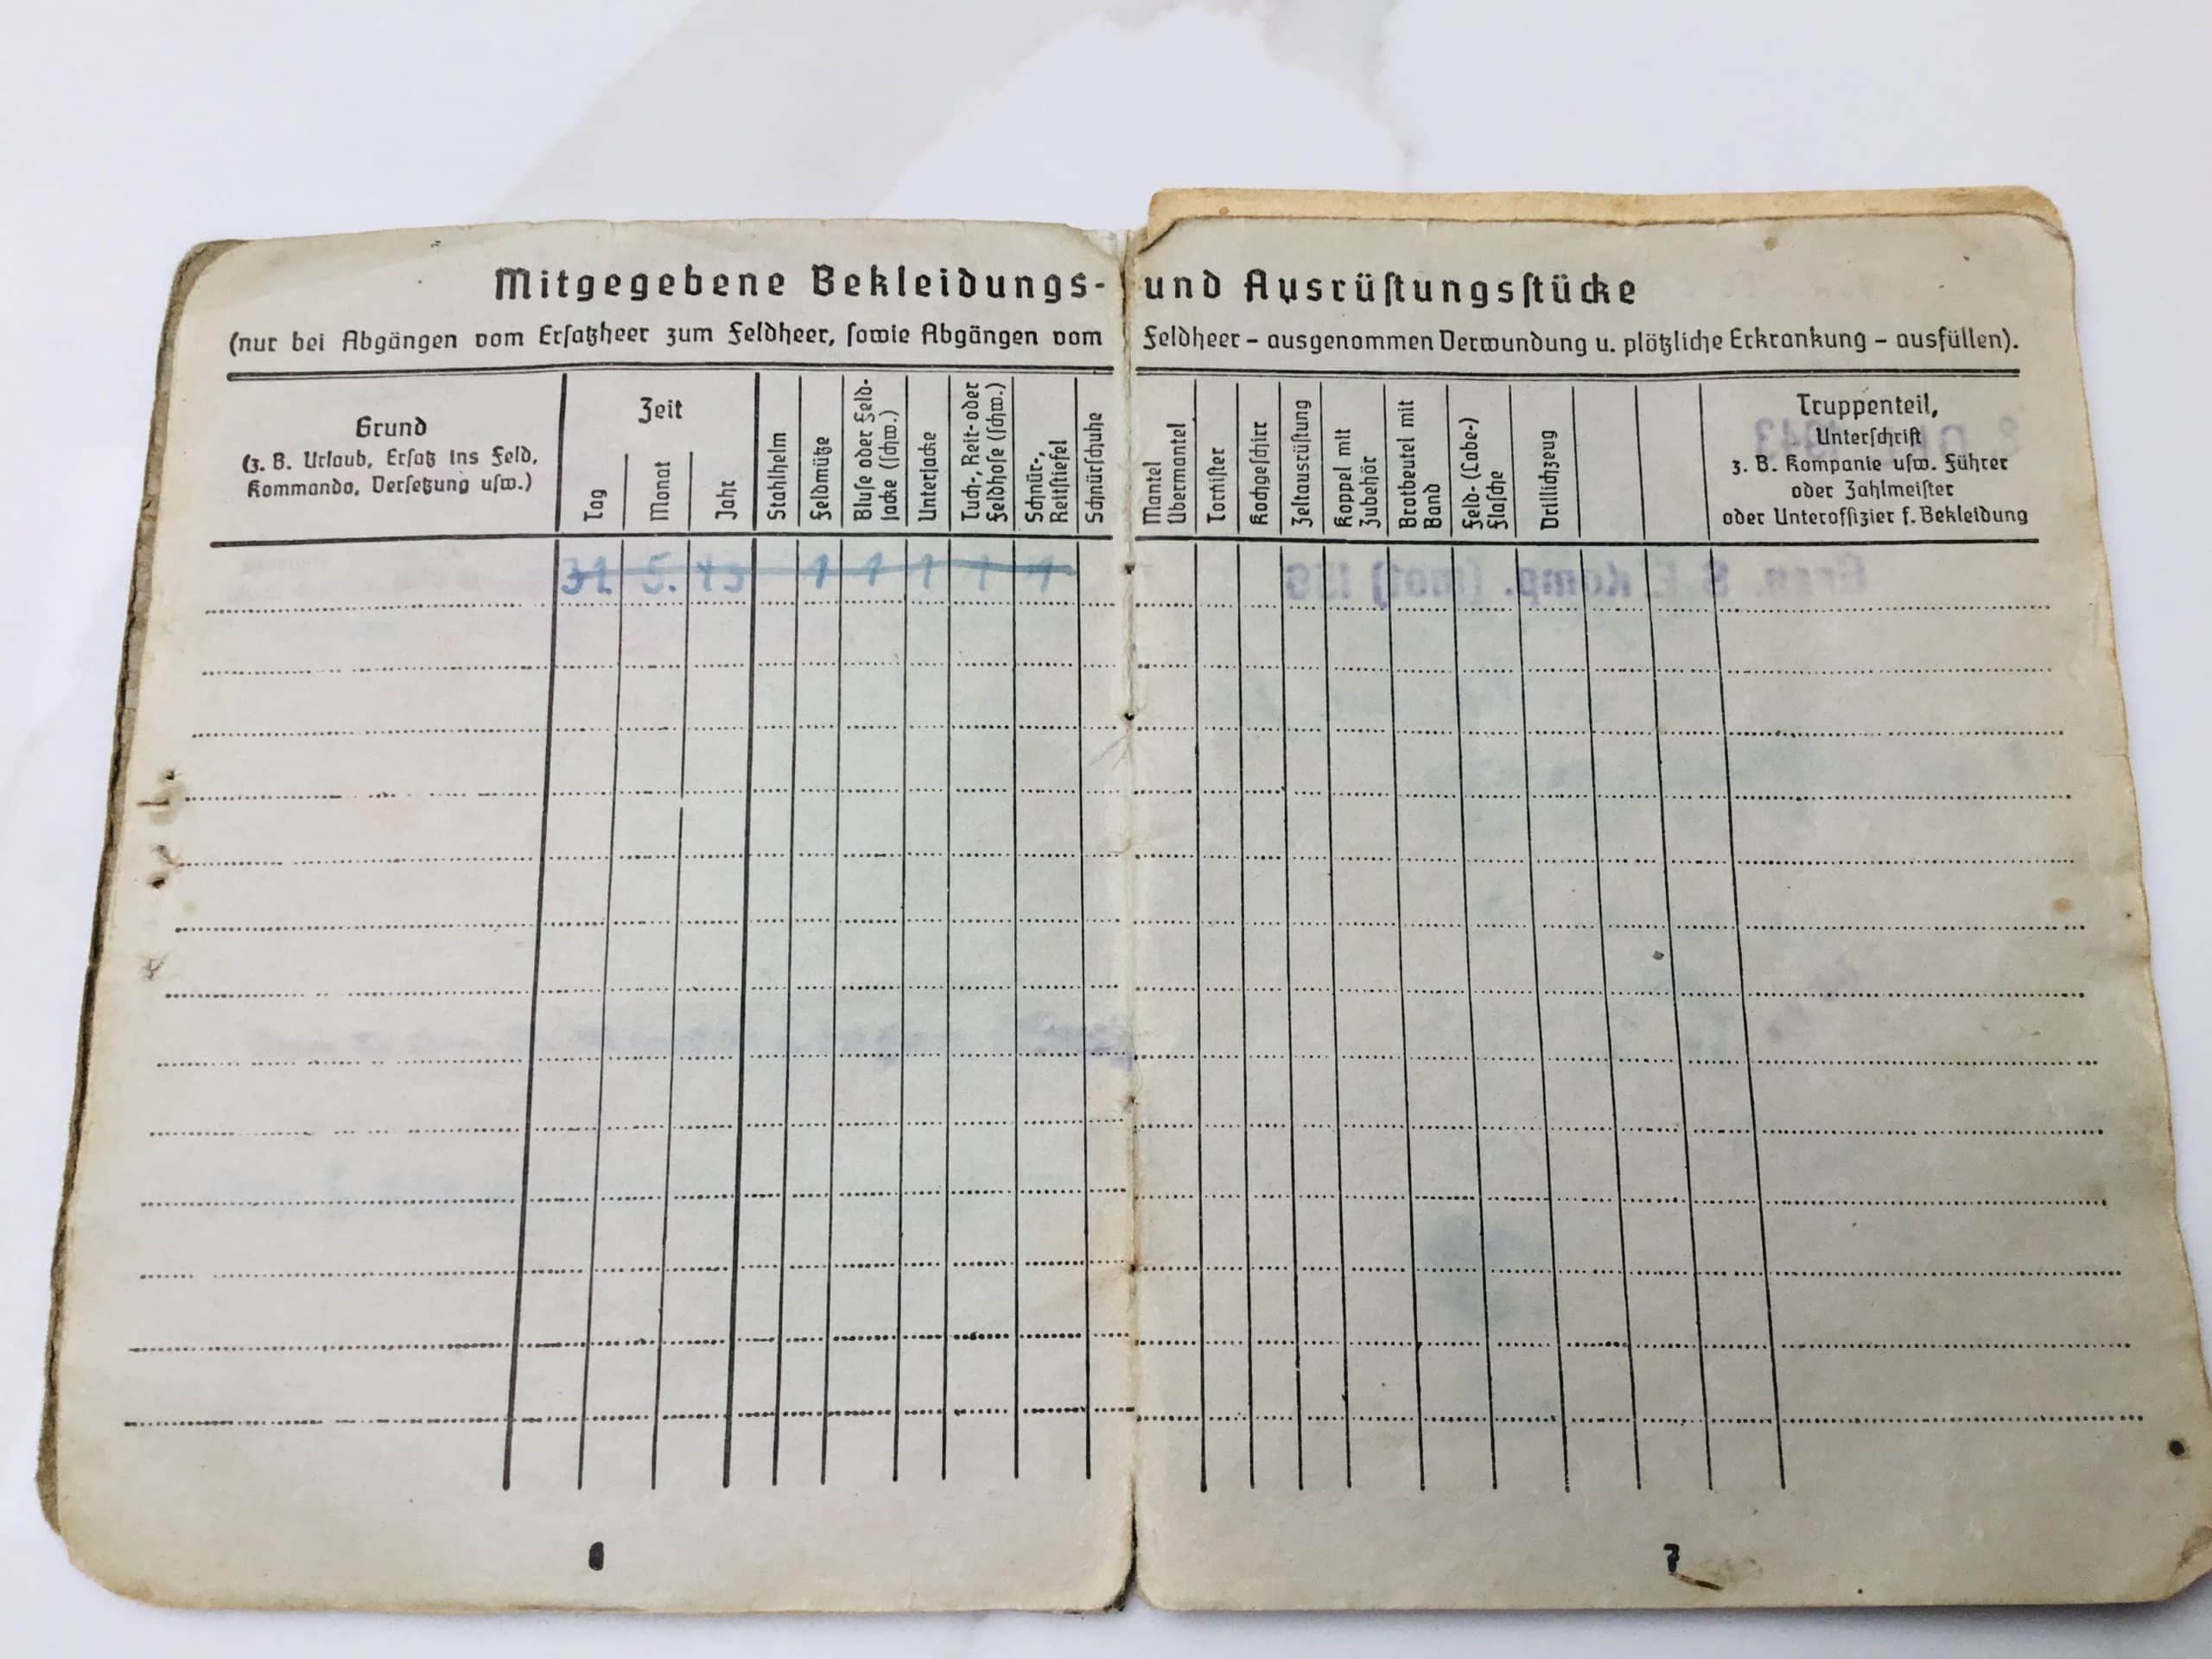 Mitgegebene Bekleidungs- und Ausrüſtungsſtücke
(nur bei Abgängen vom Erſatzheer zum Feldheer, ſowie Abgängen vom Feldheer – ausgenommen Verwundung u. plötzliche Erkrankung – ausfüllen).
Grund
(z. B. Urlaub, Erſatz ins Feld,
Kommando, Verſetzung uſw.)
Zeit
Tag
Monat
Jahr
Stahlhelm
Feldmütze
Bluſe oder Feld-
jacke (ſchw.)
Unterjacke
Tuch-, Reit- oder
Feldhoſe (ſchw.)
Schnür-,
Reitſtiefel
Schnürſchuhe
Mantel
Übermantel
Torniſter
Kochgeſchirr
Zeltausrüſtung
Koppel mit
Zubehör
Brotbeutel mit
Band
Feld- (Labe-)
flaſche
Drillichzeug
Truppenteil,
Unterſchrift
z. B. Kompanie uſw. Führer
oder Zahlmeiſter
oder Unteroffizier f. Bekleidung
31 5. 43 1 1 1 1 1
6
7